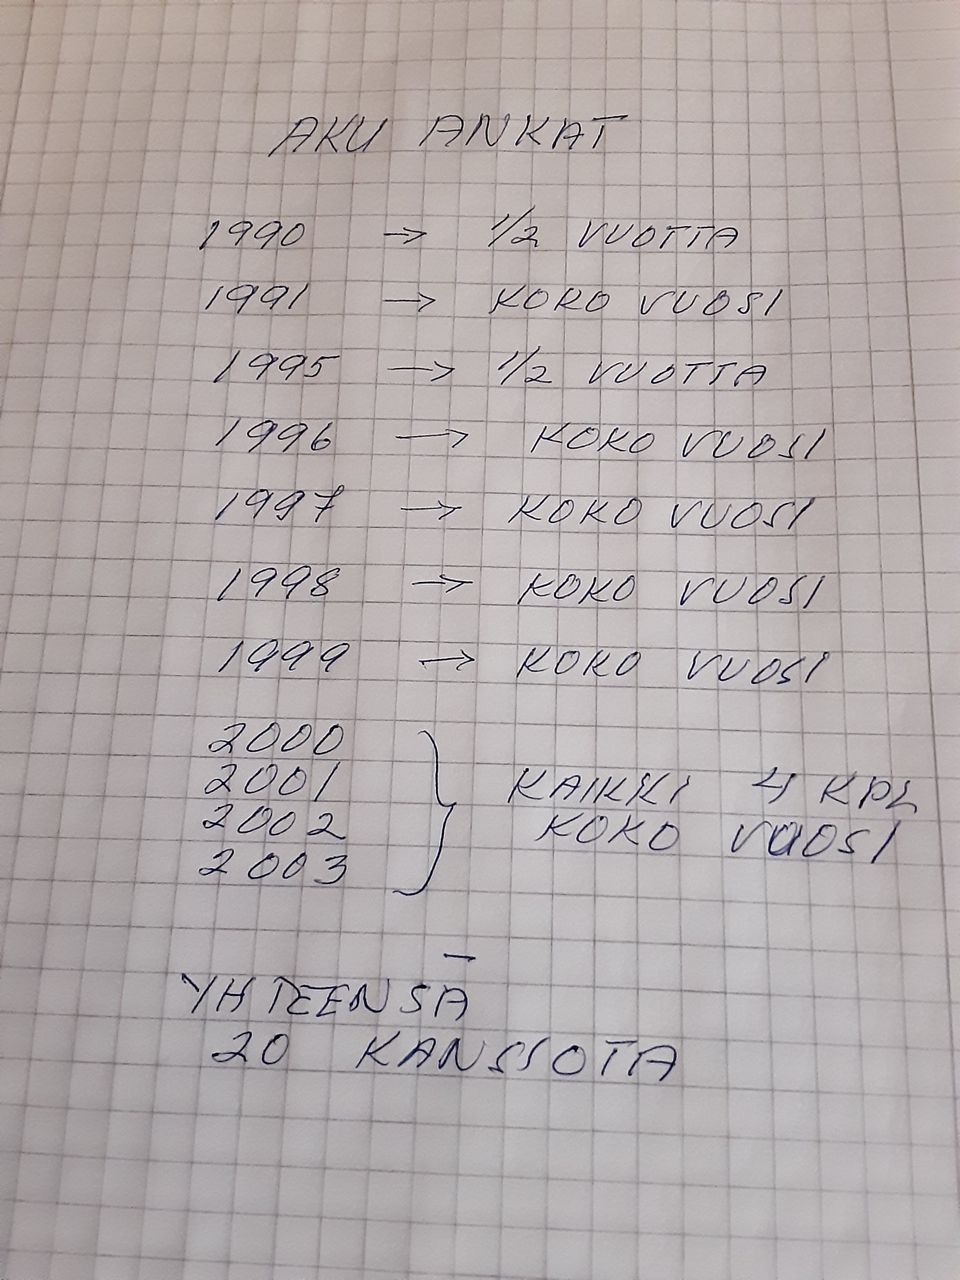 AKU ANKAT
1990 → 1/2 VUOTTA
1991 → KOKO VUOSI
1995 → 1/2 VUOTTA
1996 → KOKO VUOSI
1997 → KOKO VUOSI
1998 → KOKO VUOSI
1999 → KOKO VUOSI
2000
2001
2002
2003
KAIKKI 4 KPL
KOKO VUOSI
YHTEENSÄ
20 KANSIOTA